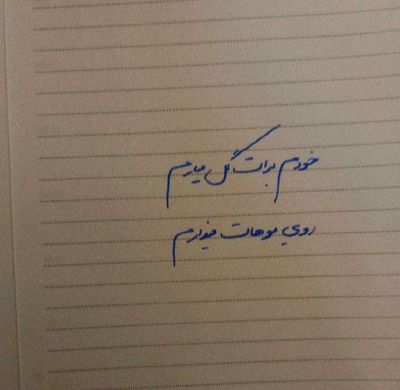 خودم برات گل میارم
روی موهات میذارم